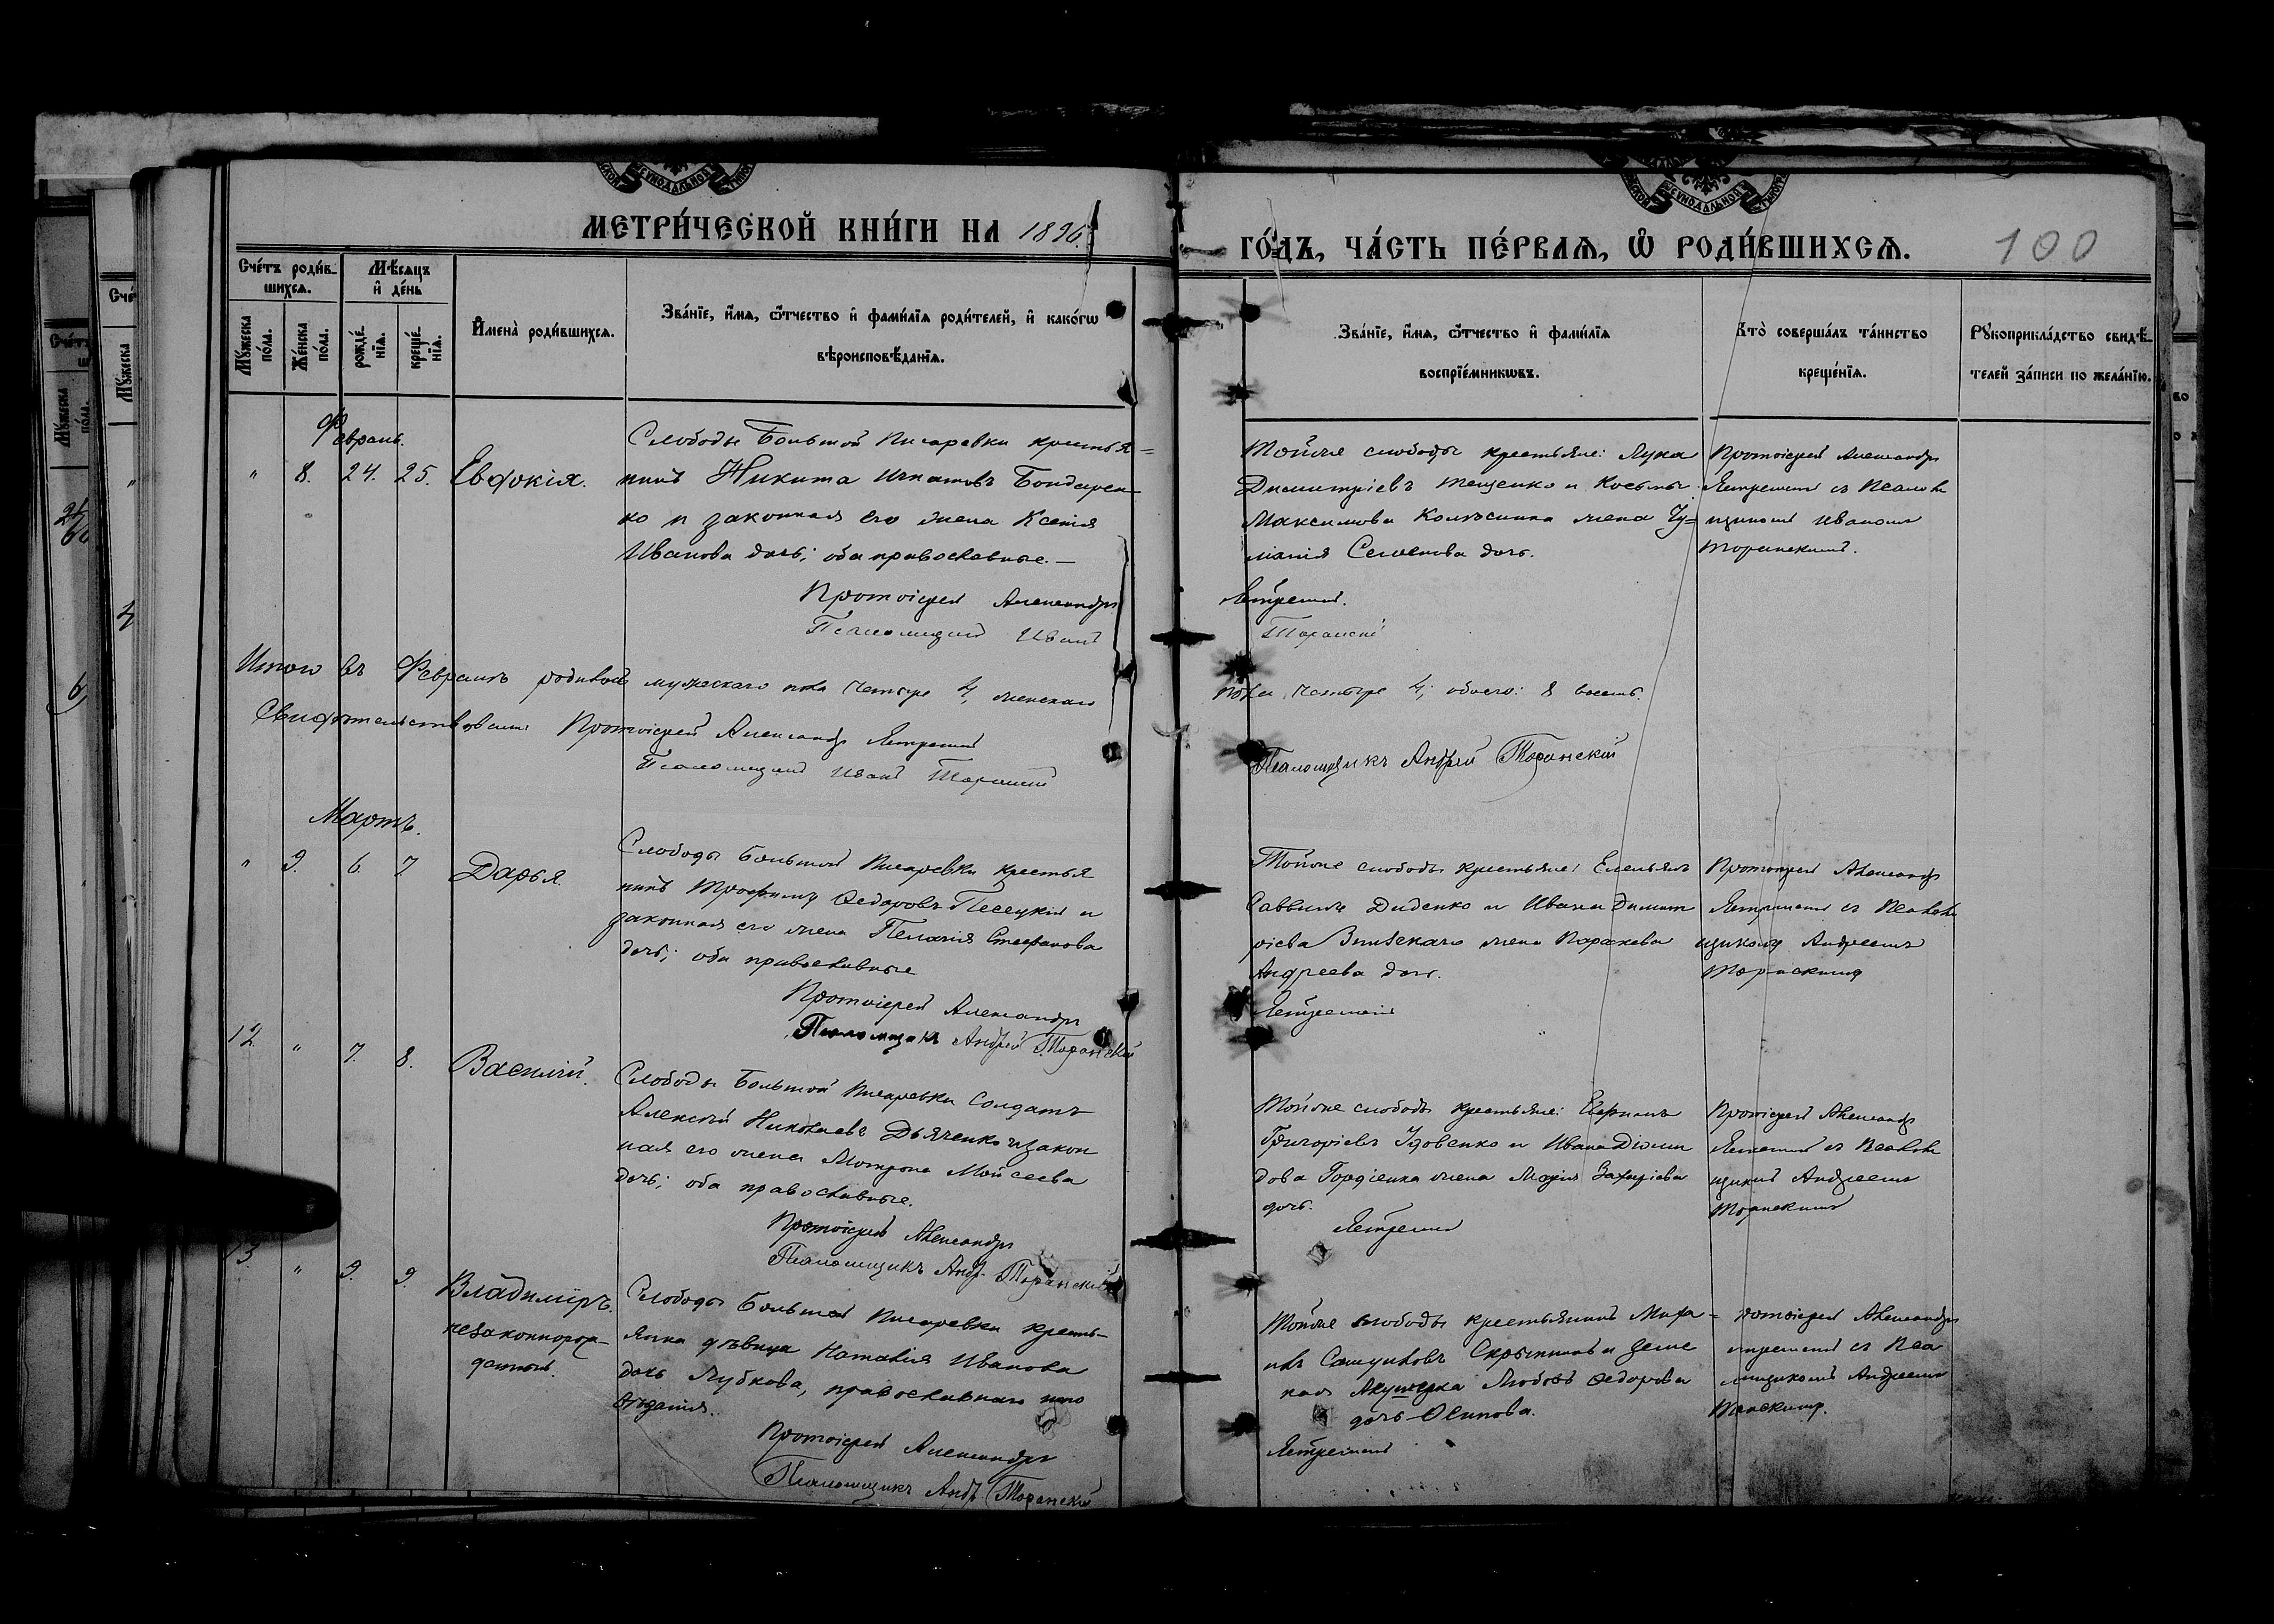 МЕТРИ́ЧЕСКОЙ КНИ́ГИ НА 1896
ГО́ДЪ, ЧА́СТЬ ПЕ́РВАѦ, Ѽ РОДИ́ВШИХСѦ.
100
Сче́тъ роди́в-
шихсѧ.
Мѣ́сѧцъ
и҆ де́нь
Мꙋ́жеска
по́ла.
Же́нска
по́ла.
рожде́-
нїѧ.
креще́-
нїѧ.
И҆мена̀ роди́вшихсѧ.
Зва́нїе, и҆́мѧ, ѻ҆́тчество и҆ фами́лїѧ роди́телей, и҆ како́гѡ
вѣроисповѣ́данїѧ.
Зва́нїе, и҆́мѧ, ѻ҆́тчество и҆ фами́лїѧ
воспрїе́мникѡвъ.
Кто̀ соверша́лъ та́инство
креще́нїѧ.
Рꙋкоприкла́дство свидѣ́-
телей за́писи по жела́нїю.
Февраль.
" 8. 24. 25. Евдокія.
Слободы Большой Писаревки крестья=
нинъ Никита Игнатовъ Бондарен-
ко и законная его жена Ксенія
Иванова дочь; оба православные.—
Протоіерей Александръ
Псаломщикъ Иванъ
Тойже слободы крестьяне: Лука
Димитріевъ Тещенко и Косьмы
Максимова жена
Семенова дочь.
Торанскій
Протоіерей Александръ
съ Псалом
щикомъ Иваномъ
Торанскимъ.
Итого въ Февралѣ родилось мужескаго пола четыре 4, женскаго
пола четыре 4; обоего: 8 восемь.
Свидѣтельствовали: Протоіерей Александръ
Псаломщикъ Иванъ Торанскій
Псаломщикъ Андрей Торанскій
Мартъ.
" 9. 6. 7 Дарья.
Слободы Большой Писаревки крестья
нинъ Трофимъ Ѳедоровъ Песецкій и
законная его жена Пелагія Стефанова
дочь; оба православные
Протоіерей Александръ
Псаломщикъ Андрей Торанскій
Тойже слободы крестьяне: Емельянъ
Саввинъ Диденко и Ивана Димит
ріева жена Параскева
Андреева дочь.
Протоіерей Александръ
съ Псалом
щикомъ Андреемъ
Торанскимъ
12. " 7. 8. Василій.
Слободы Большой Писаревки Солдатъ
Алексѣй Николаевъ Дьяченко и закон
ная его жена Мотрона Мойсеева
дочь; оба православные.
Протоіерей Александръ
Псаломщикъ Андр. Торанскій
Тойже слободы крестьяне: Ефимъ
Григоріевъ Удовенко и Ивана Діоми
дова Гордіенка жена Марія Захаріева
дочь.
Протоіерей Александръ
съ Псалом
щикомъ Андреемъ
Торанскимъ
13 " 9. 9. Владиміръ.
незаконнорож-
денный.
Слободы Большой Писаревки кресть-
янка дѣвица Наталія Иванова
дочь Лубкова, православнаго испо
вѣданія.
Протоіерей Александръ
Псаломщикъ Андр. Торанскій
Тойже слободы крестьянинъ Миха=
илъ Скрыпникъ и земс
кая Акушерка Любовь Ѳедорова
дочь Осипова.
ротоіерей Александръ
съ Пса
ломщикомъ Андреемъ